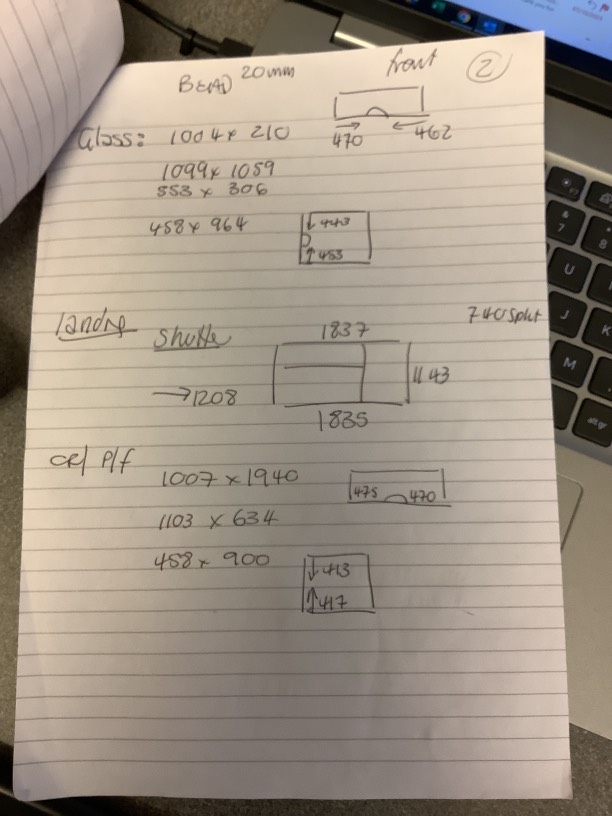 front 2
BEAD 20mm
Glass: 1004 x 210
470 462
1099 x 1059
553 x 306
458 x 964
443
453
740 split
1837
→1208
1143
1835
P/f
1007 x 1940
475 470
1103 x 634
458 x 900
413
417